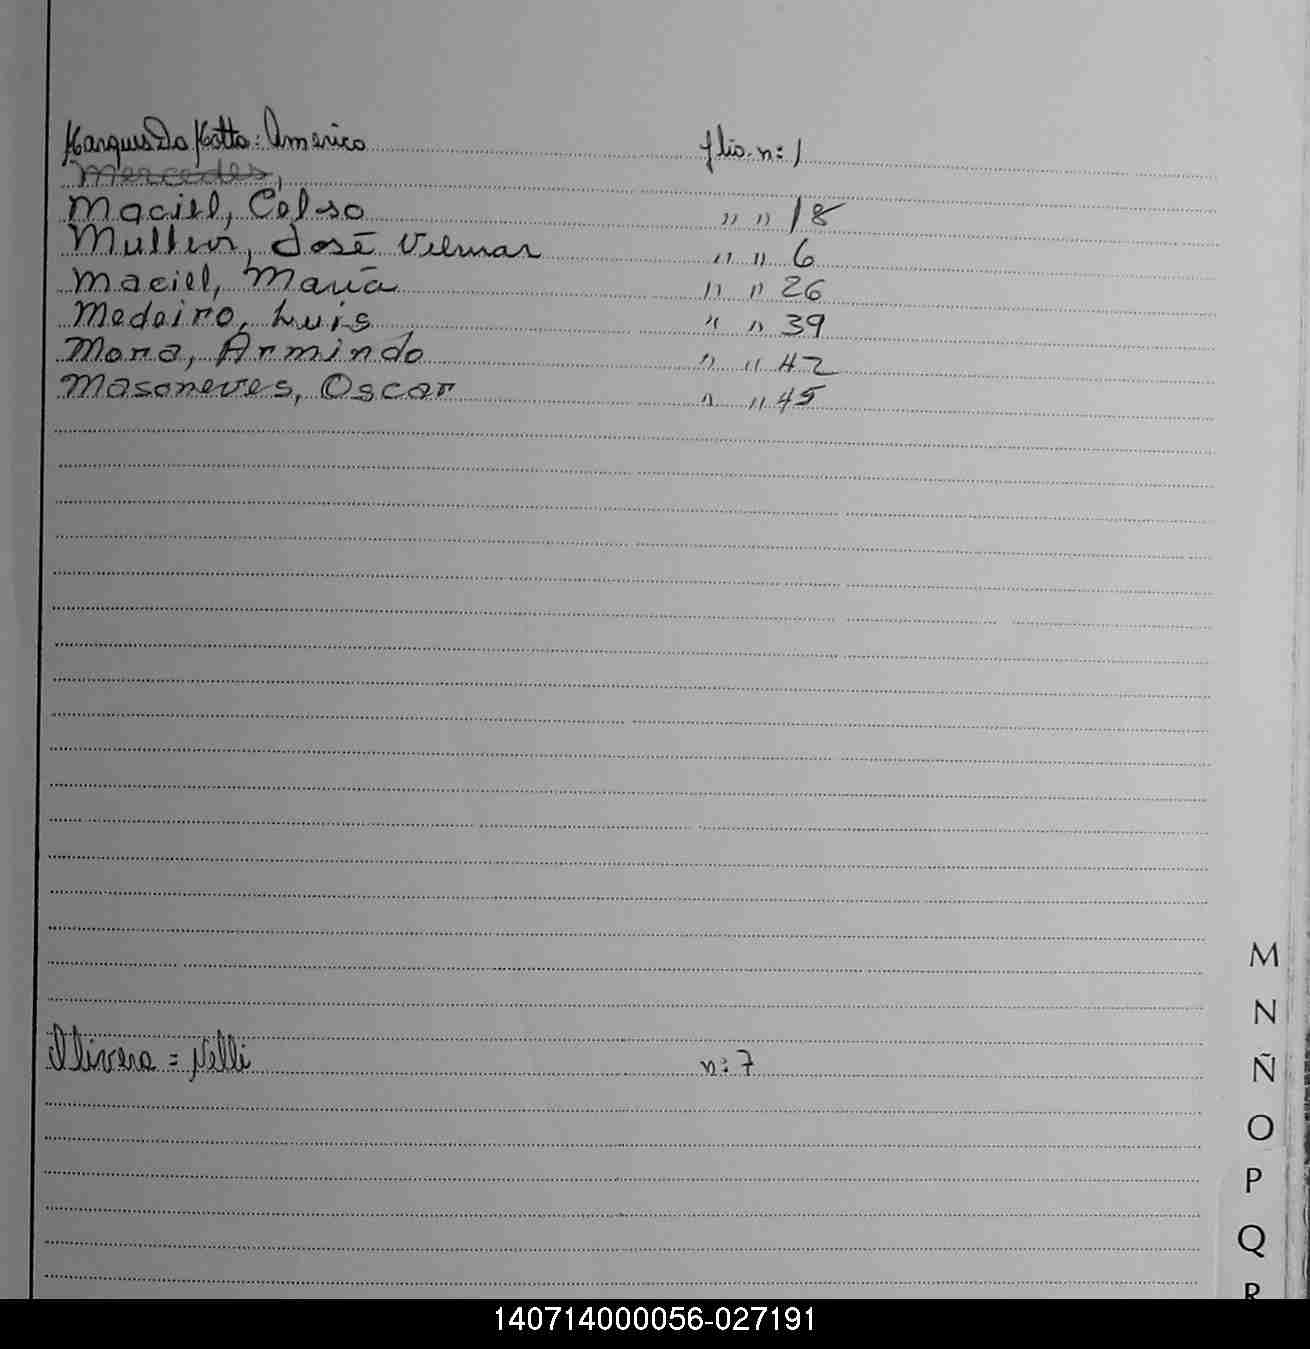 Marques Da Motta: Americo flio. n: 1
Mercedes,
Maciel, Celso " " 18
Muller, José Vilmar " " 6
Maciel, María " " 26
Medeiro, Luis " " 39
Mora, Armindo " " 42
Masoneves, Oscar " " 45
Olivera = Nelli n: 7
M
N
Ñ
O
P
Q
R
140714000056-027191